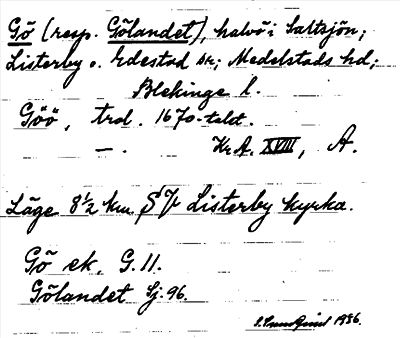 Gö (resp. Gölandet), halvö i Saltsjön;
Listerby o. Edestad sn; Medelstads hd;
Blekinge l.
Göö, trol. 1670-talet.
— . Kr.A. XVIII, A.
Läge 8½ km. SV Listerby kyrka.
Gö ek. G. 11.
Gölandet Sj. 96.
1936.